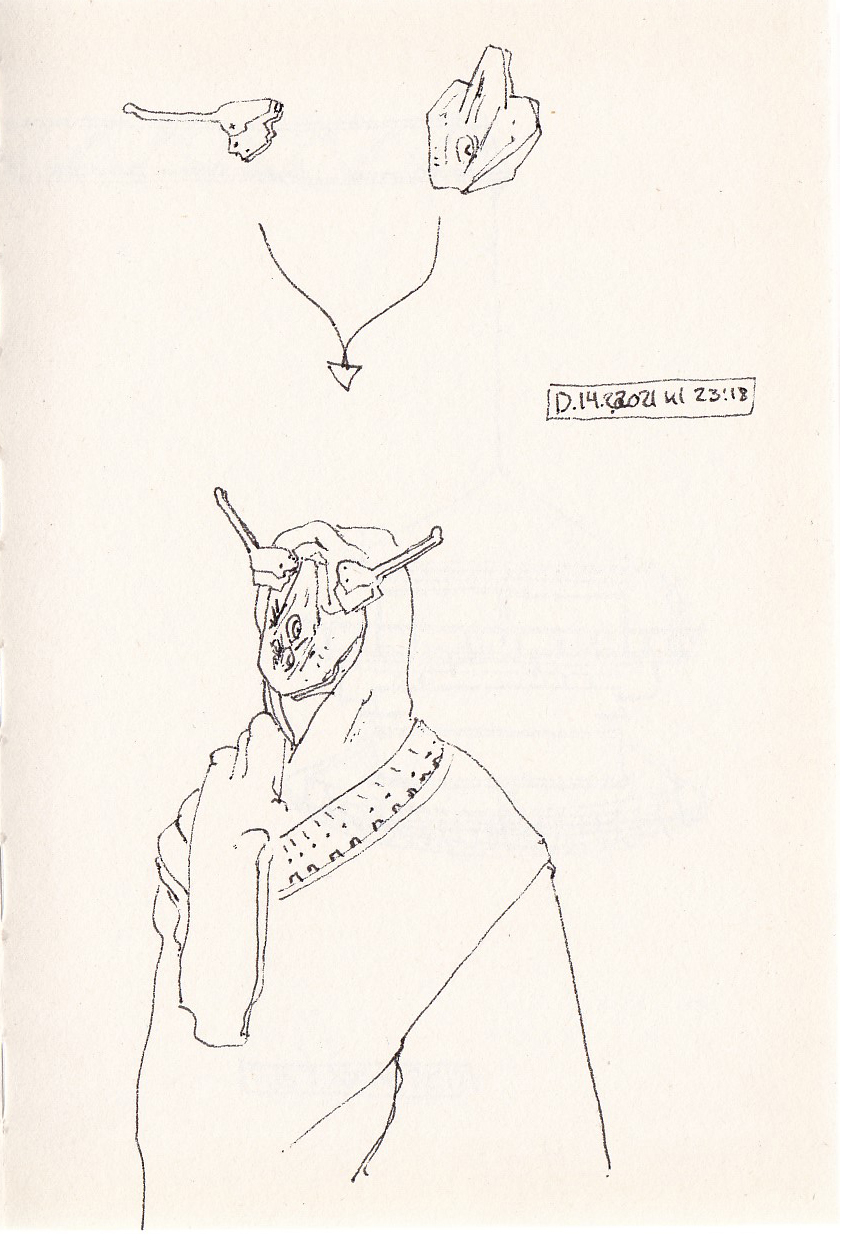 D.14.2.2021 kl 23:18